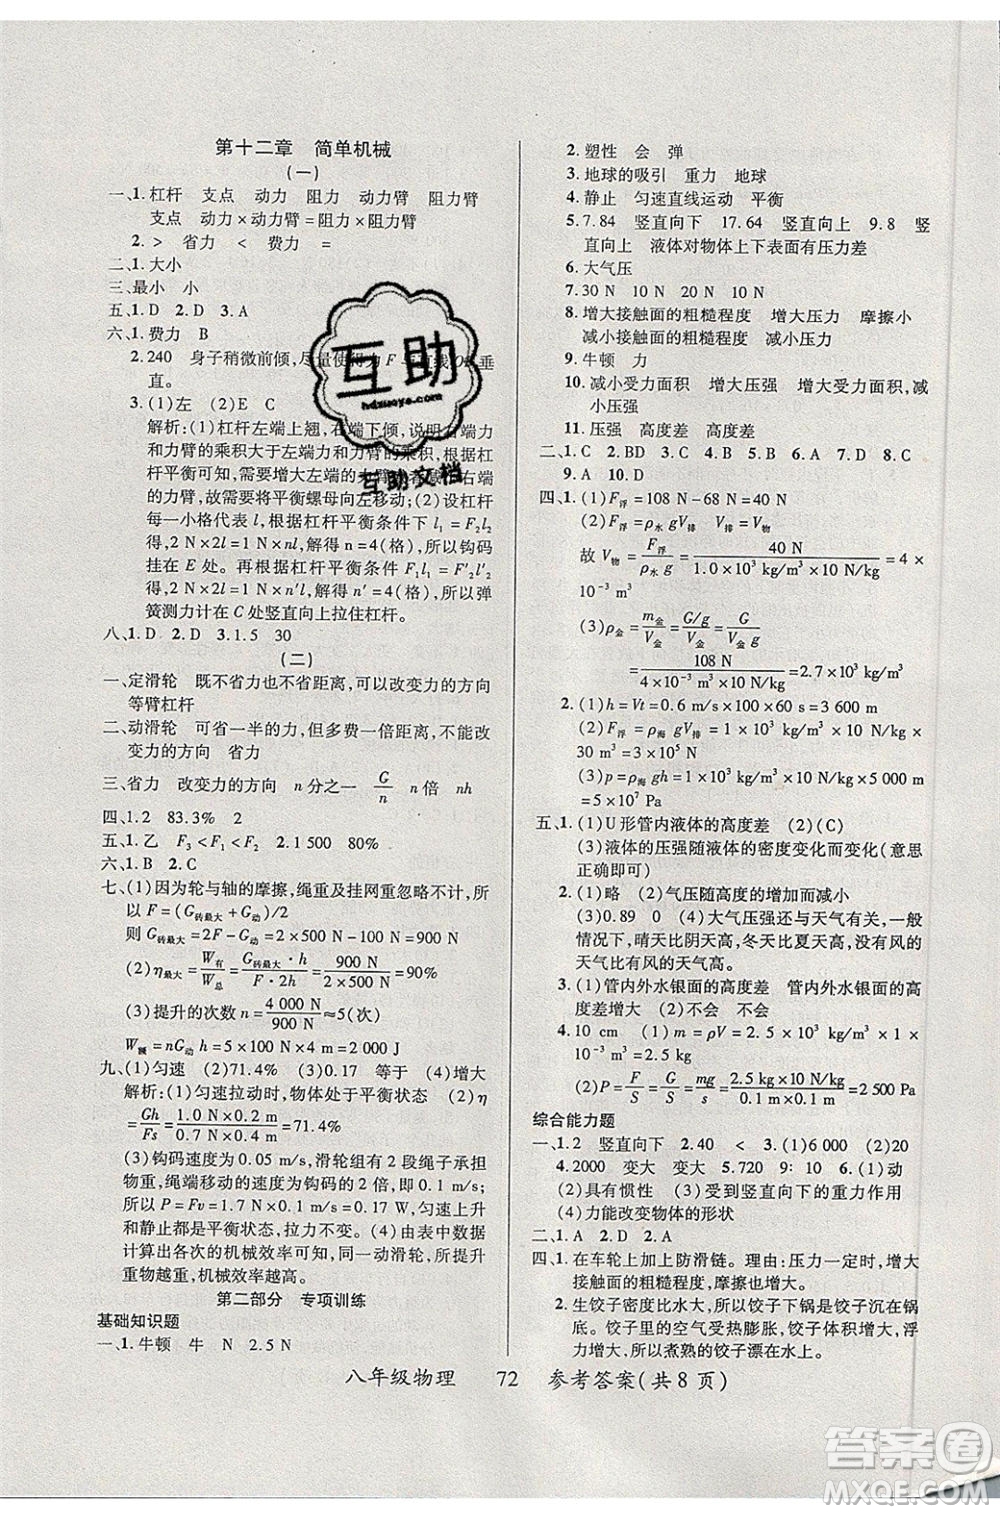 第十二章 简单机械
(一)
一、1. 杠杆 支点 动力 阻力 动力臂 阻力臂
支点 动力×动力臂=阻力×阻力臂
2. > 省力 < 费力 =
二、1. 大小
三、最小 小
五、1. D 2. D 3. A
六、1. 费力 B
2. 240 身子稍微前倾,尽量使得力 F 与直线 垂
直。
3. (1)左 (2)E C
解析:(1)杠杆左端上翘,右端下倾,说明右端力
和力臂的乘积大于左端力和力臂的乘积,根据杠
杆平衡可知,需要增大左端的力臂 右端
力臂,故需要将平衡螺母向左移动;(2)设杠杆
每一小格代表 l,根据杠杆平衡条件下 l₁=F₂l₂
得,2 N×2l=1 N×nl,解得 n=4(格),所以,钩码
挂在 E 处。再根据杠杆平衡条件 F₁l₁=F′₂l′₂
得,2 N×2l=1 N×n′l,解得 n′=4(格),所以弹
簧测力计在 C 处竖直向上拉住杠杆。
八、1. D 2. D 3. 1.5 30
(二)
一、定滑轮 既不省力也不省距离,可以改变力的方向
等臂杠杆
二、动滑轮 可省一半的力,但多费一半距离,不能改
变力的方向 省力
三、省力 改变力的方向 n 分之一 G/n n nh
四、1. 2 83.3% 2
五、1. 乙 F₃<F₁<F₂ 2. 1 500 80%
六、1. B 2. C
七、(1)因为轮与轴的摩擦,绳重及挂网重忽略不计,所
以 F=(G砖最大+G动)/2
则 G砖最大=2F-G动=2×500 N-100 N=900 N
(2)η最大=W有/W总=G砖最大·h/F·2h=900 N/2×500 N=90%
(3)提升的次数 n=4 000 N/900 N≈5(次)
W额=nG动h=5×100 N×4 m=2 000 J
九、(1)匀速 (2)71.4% (3)0.17 等于 (4)增大
解析:(1)匀速拉动时,物体处于平衡状态 (2)η
=Gh/Fs=1 N×0.2 m/0.7 N×0.4 m≈71.4%
(3)钩码速度为 0.05 m/s,滑轮组有两段绳子承担
重物,绳端移动的速度为钩码的 2 倍,即为 0.1
m/s,所以 P=Fv=1.7 N×0.1 m/s=0.17 W,匀速上升
和静止都是平衡状态,拉力不变。(4)由表中数据
计算出各次的机械效率可知,同一动滑轮,提升的
重物越重,机械效率越高。
第二部分 专项训练
基础知识题
一、1. 牛顿 牛 N 2.5 N
2. 塑性 会 弹
3. 地球的吸引 重力 地球
4. 静止 匀速直线运动 平衡
5. 7.84 竖直向下 17.64 竖直向上 9.8 竖
直向上 液体对物体上下表面有压力差
6. 大气压
7. 30 N 10 N 20 N 10 N
8. 增大接触面的粗糙程度 增大压力 摩擦小
减小接触面的粗糙程度 减小压力
9. 牛顿 力
10. 减小受力面积 增大压强 增大受力面积,减
小压强
11. 压强 高度差 高度差
二、1. C 2. BD 3. C 4. D 5. C 6. B 7. D 8. C
9. A 10. D
四、1. (1)F浮=108 N-68 N=40 N
(2)F浮=ρ水gV排 V排=V物
故 V物=F浮/ρ水g=40 N/1.0×10³ kg/m³×10 N/kg=4×
10⁻³ m³
(3)ρ金=m金/V金=G/g/V金=G/V金g
=108 N/4×10⁻³ m³×10 N/kg=2.7×10³ kg/m³
2. (1)h=Vt=0.6 m/s×100×60 s=3 600 m
(2)F浮=ρ海gV排=1×10³ kg/m³×10 N/kg×
30 m³=3×10⁵ N
(3)p=ρ海gh=1×10³ kg/m³×10 N/kg×5 000 m
=5×10⁷ Pa
五、1. (1)U 形管内液体的高度差 (2)(C)
(3)液体的压强随液体的密度变化而变化(意思
正确即可)
2. (1)略 (2)气压随高度的增加而减小
(3)0.89 0 (4)大气压强还与天气有关,一般
情况下,晴天比阴天高,冬天比夏天高,没有风的天
气比有风的天气高。
3. (1)管内外水银面的高度差 管内外水银面的高
度差增大 (2)不会 不会
4. 10 cm (1)m=ρV=2.5×10³ kg/m³×1×
10⁻³ m³=2.5 kg
(2)P=F/S=G/S=mg/s=2.5 kg×10 N/kg/0.01 m²=2 500 Pa
综合能力题
一、1. 2 竖直向下 2. 40 < 3. (1)6 000 (2)20
4. 2000 变大 变大 5. 720 9∶10 6. (1)动
(2)具有惯性 (3)受到竖直向下的重力作用
(4)力能改变物体的形状
二、1. A 2. D 3. A
四、1. 在车轮上加上防滑链。理由:压力一定时,增大
接触面的粗糙程度,摩擦也增大。
2. 生饺子密度比水大,所以饺子入锅后饺子沉在锅
底。饺子里的空气受热膨胀,饺子体积增大,浮
力增大,所以煮熟的饺子漂在水上。
八年级物理 72 参考答案(共 8 页)
互助
hdzuoye.com
互助文档
答案圈
MXQE.COM